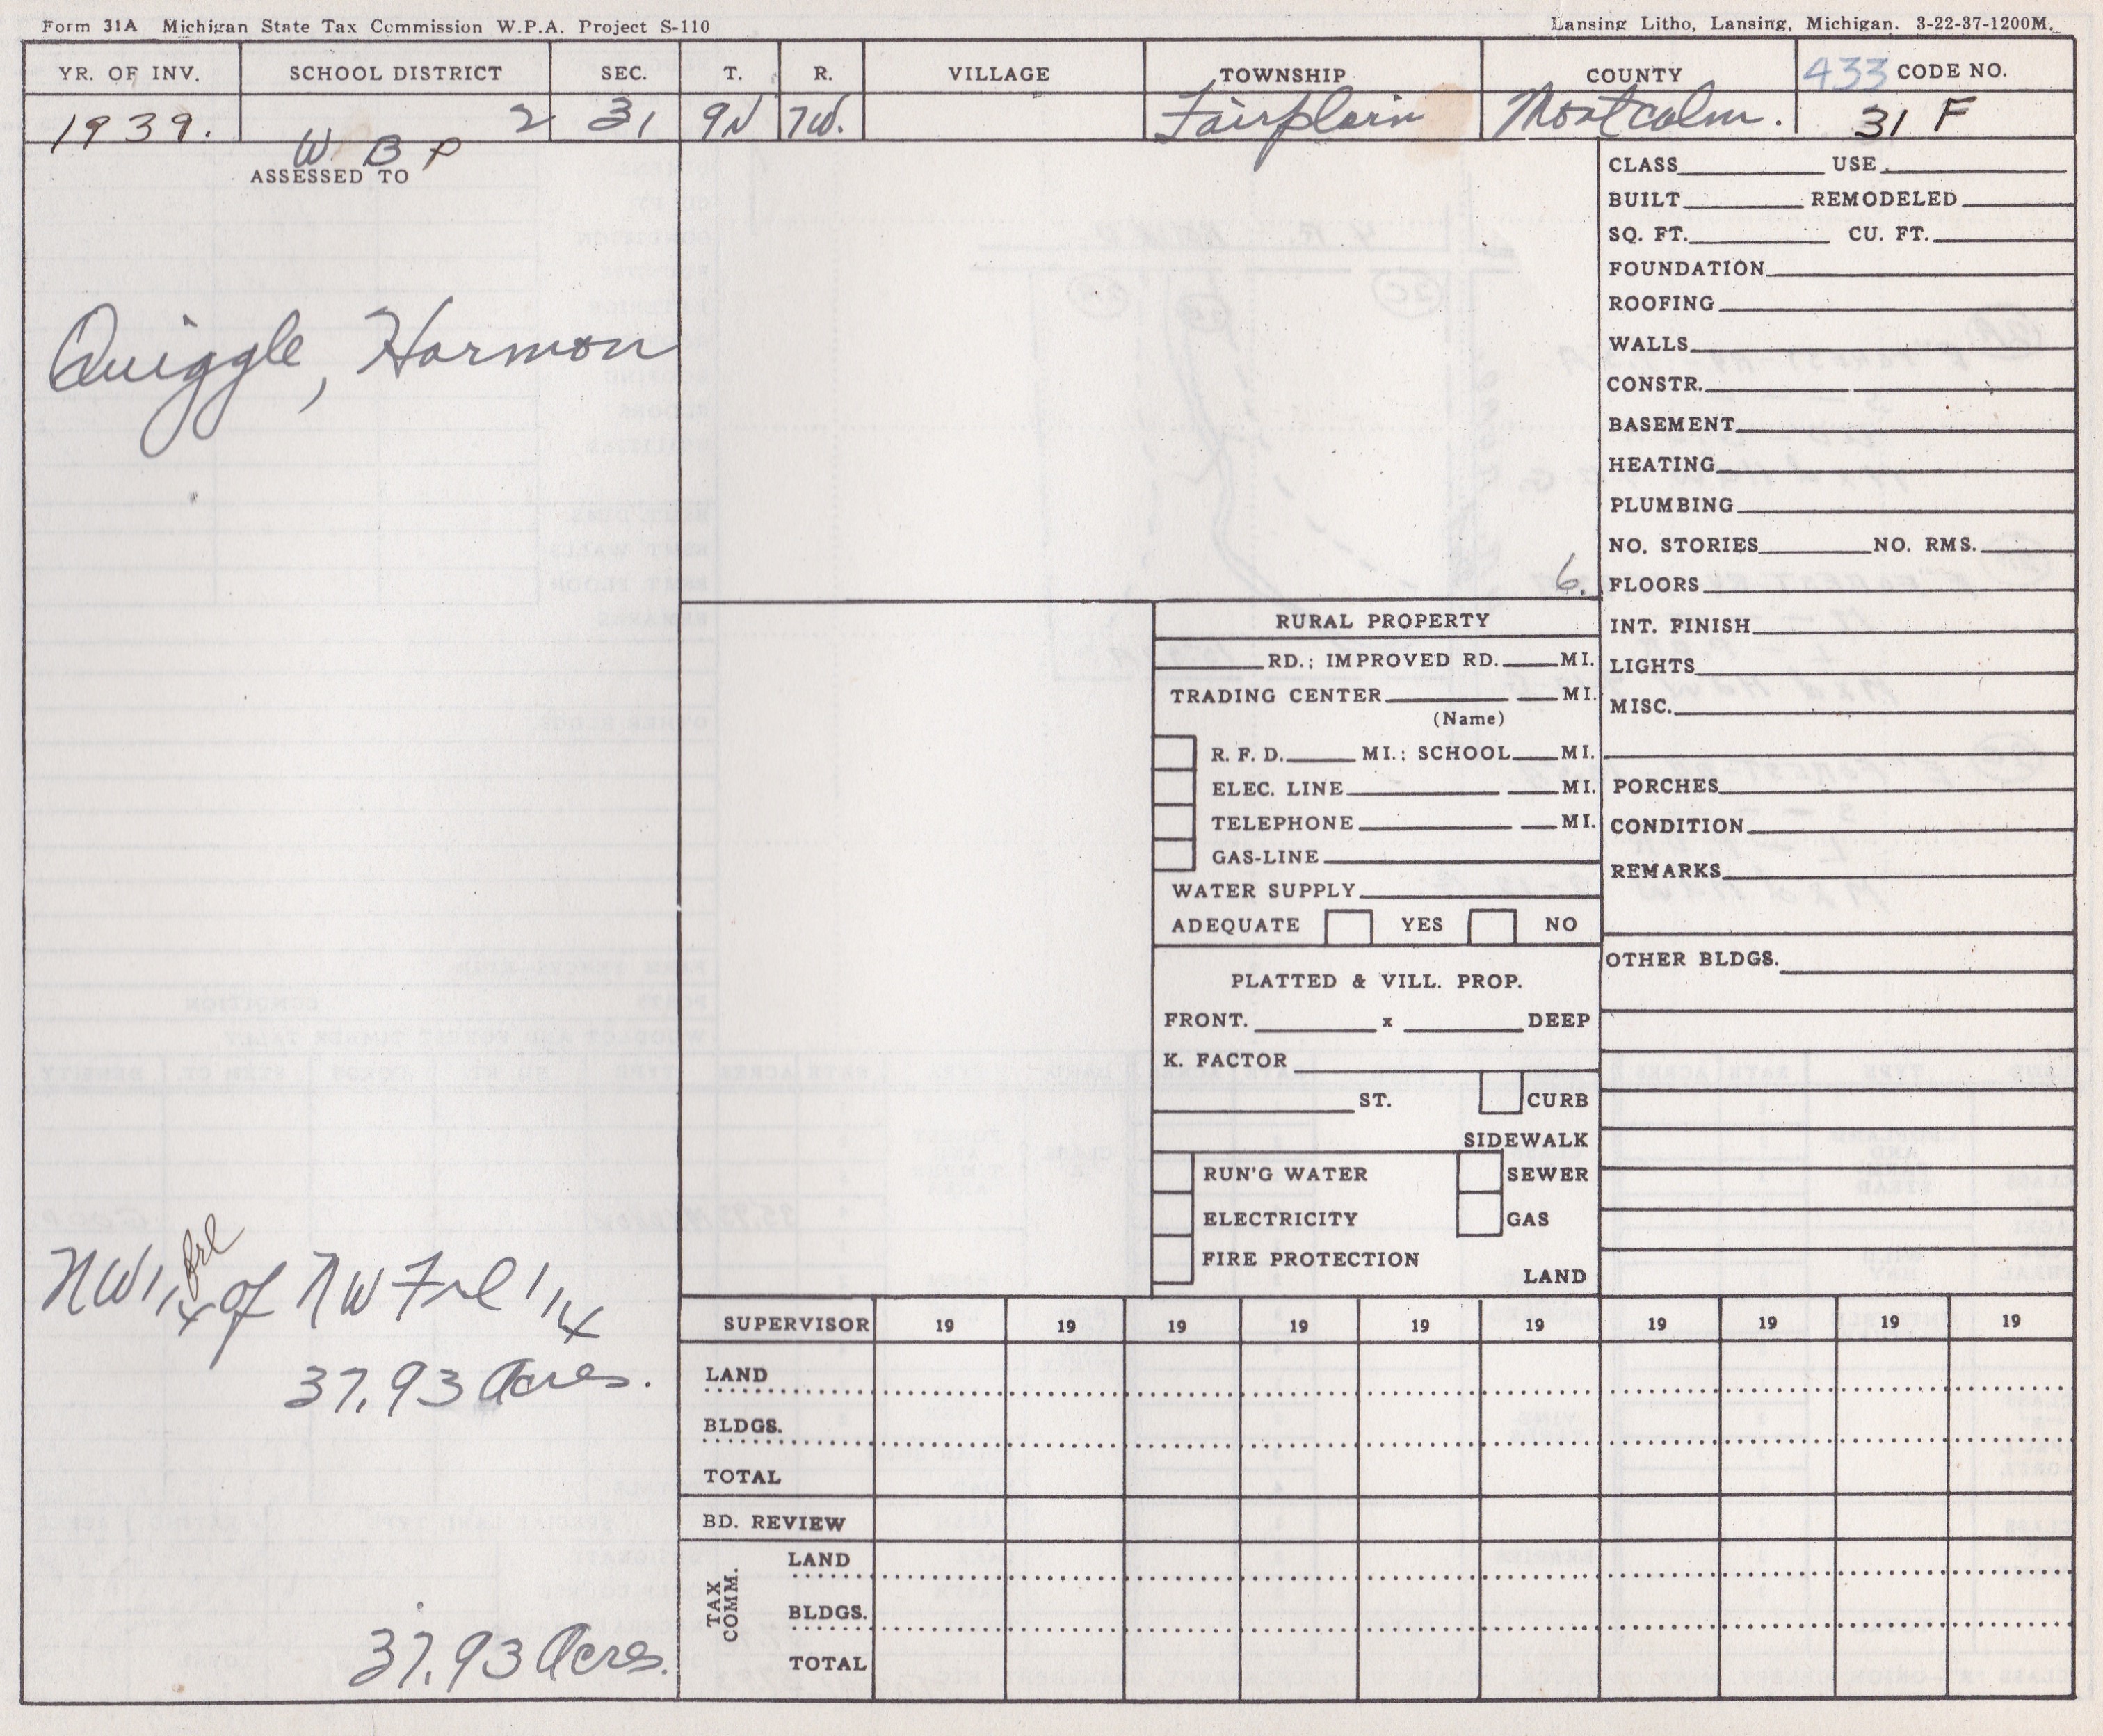 Form 31A Michigan State Tax Commission W.P.A. Project S-110
Lansing Litho, Lansing, Michigan. 3-22-37-1200M.
YR. OF INV. SCHOOL DISTRICT SEC. T. R. VILLAGE TOWNSHIP COUNTY 433 CODE NO.
1939. 2 31 9N 7W. Fairplain Montcalm. 31 F
W B P
ASSESSED TO
Quiggle, Harmon
NW 1/4 frl of NW Frl 1/4
37.93 Acres.
37.93 Acres.
6.
RURAL PROPERTY
RD.; IMPROVED RD. MI.
TRADING CENTER MI.
(Name)
R. F. D. MI.; SCHOOL MI.
ELEC. LINE MI.
TELEPHONE MI.
GAS-LINE
WATER SUPPLY
ADEQUATE YES NO
PLATTED & VILL. PROP.
FRONT. x DEEP
K. FACTOR
ST. CURB
SIDEWALK
RUN'G WATER SEWER
ELECTRICITY GAS
FIRE PROTECTION
LAND
CLASS USE
BUILT REMODELED
SQ. FT. CU. FT.
FOUNDATION
ROOFING
WALLS
CONSTR.
BASEMENT
HEATING
PLUMBING
NO. STORIES NO. RMS.
FLOORS
INT. FINISH
LIGHTS
MISC.
PORCHES
CONDITION
REMARKS
OTHER BLDGS.
SUPERVISOR 19 19 19 19 19 19 19 19 19 19
LAND
BLDGS.
TOTAL
BD. REVIEW
TAX COMM.
LAND
BLDGS.
TOTAL